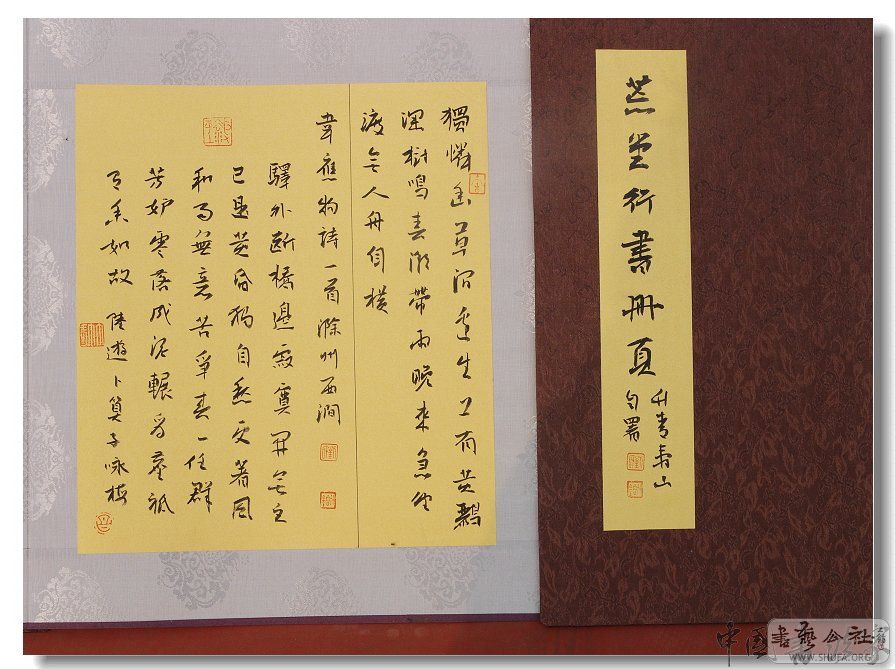 堂行書冊頁
自署
獨憐幽草澗邊生上有黃鸝
深樹鳴春潮帶雨晚來急野
渡無人舟自橫
韋應物詩一首滁州西澗
驛外斷橋邊寂寞開無主
已是黃昏獨自愁更著風
和雨無意苦爭春一任群
芳妒零落成泥輾為塵祗
有香如故 陸遊卜算子咏梅
中国書藝公社
WWW.SHUFA.ORG